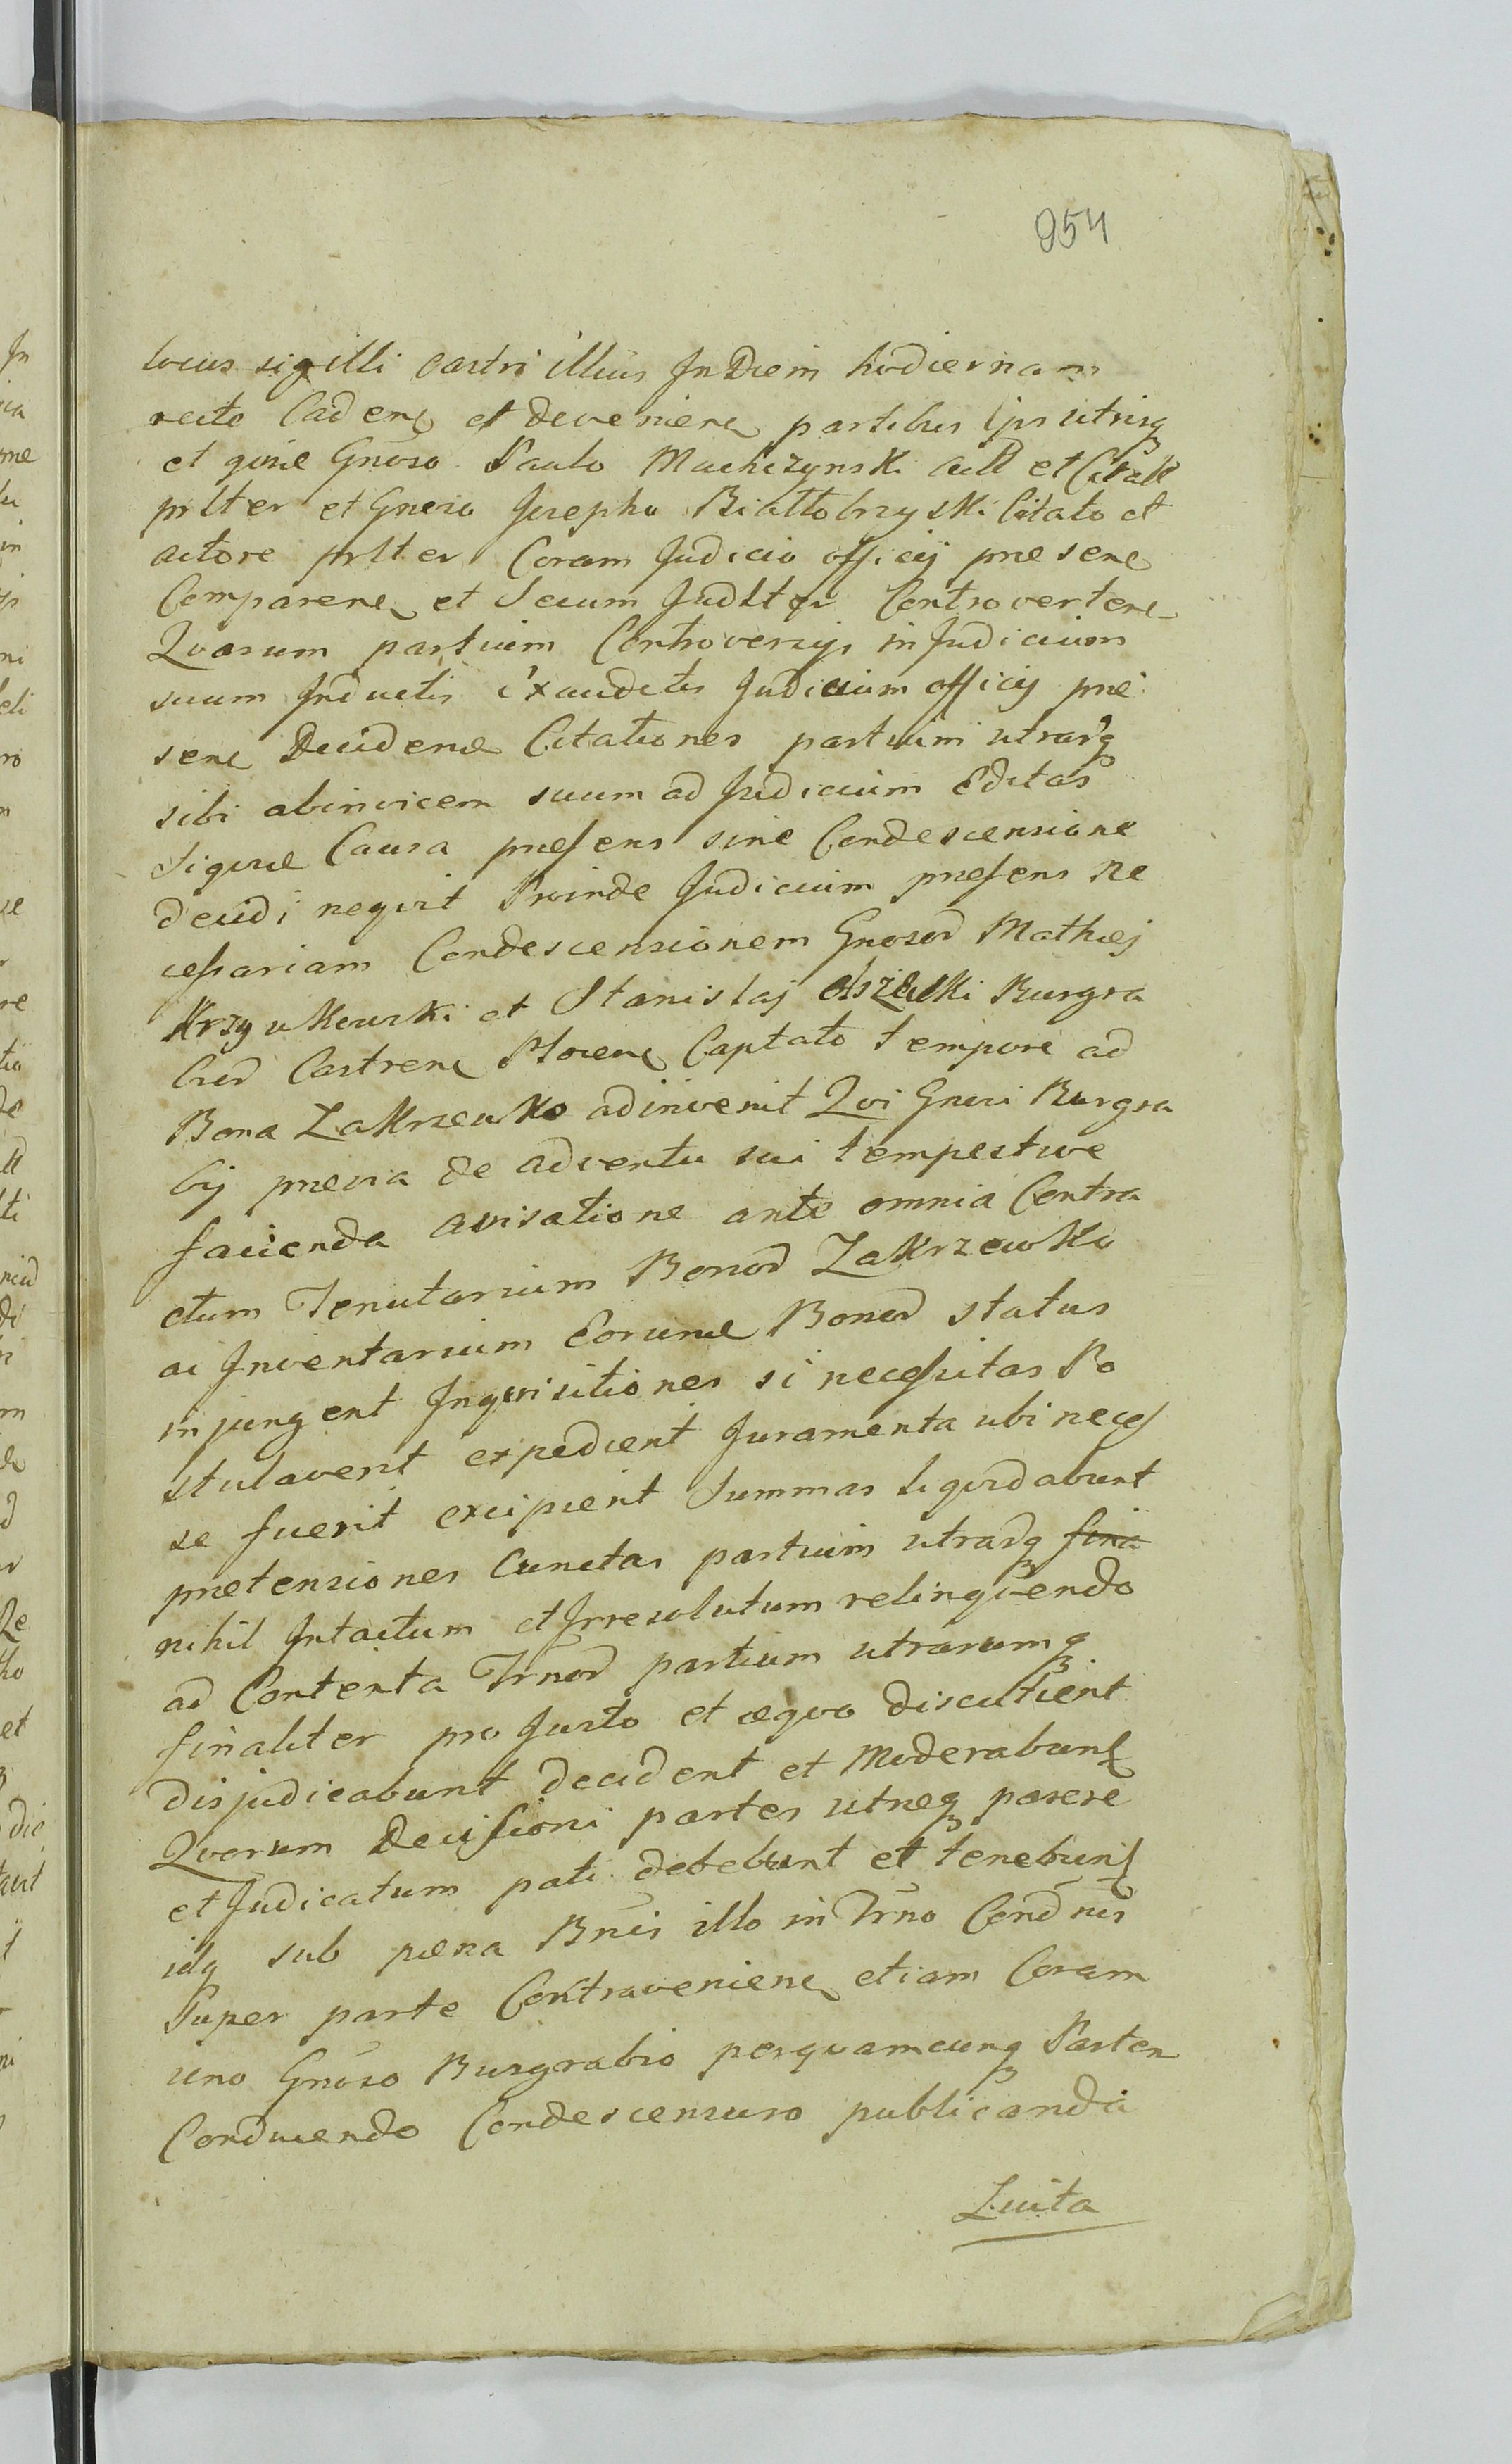 954
locus sigilli Castri illius In Diem hodiernam
recte Caden et devenien partibus ijs utrisq
et quie Gnoso Paulo Muchczynski act et Citatt
prlter et Gneso Josepho Białłobrzyski Citato et
actore prlter Coram Judicio officij presene
Comparen et Secum Judlter Controverten
Qvarum partium Controversijs in Judicium
suum Inductis Exauditis Judicium officij pre
sene Decidene Citationes partium utrarq
sibi abinvicem suum ad Judicium Editas
Siqvie Causa præsens sine Condescensione
decidi neqvit Proinde Judicium præsens Ne
cessariam Condescensionem Gnosor Mathiej
Krzywkowski et Stanislaj Olszewski Burgra
bior Castren Plocen Captato tempore ad
Bona Zakrzewko adinvenit Qvi Gnosi Burgra
bij previa de adventu sui tempestive
facienda avisatione ante omnia Contra
ctum Tenutarium Bonor Zakrzewko
ac Inventarium Eorume Bonor status
injungent Inqvisitiones si necessitas Po
stulaverit expedient Juramenta ubi neces
se fuerit excipient Summas liqvidabunt
prætensiones Cunctas partium utrarq fina
nihil Intactum et Irresolutum relinqvendo
ad Contenta Trnor partium utrarumq
finaliter pro Justo et æqvo discutient
disjudicabunt decident et Moderabunt
Qvorum Decisioni partes utreq parere
et Judicatum pati debebunt et tenebunt
idq sub pæna Bnis illo in Trno Condnis
Super parte Contravenien etiam Coram
uno Gnoso Burgrabio perqvamcunq Partem
Conducendo Condescensuro publicanda
Luita